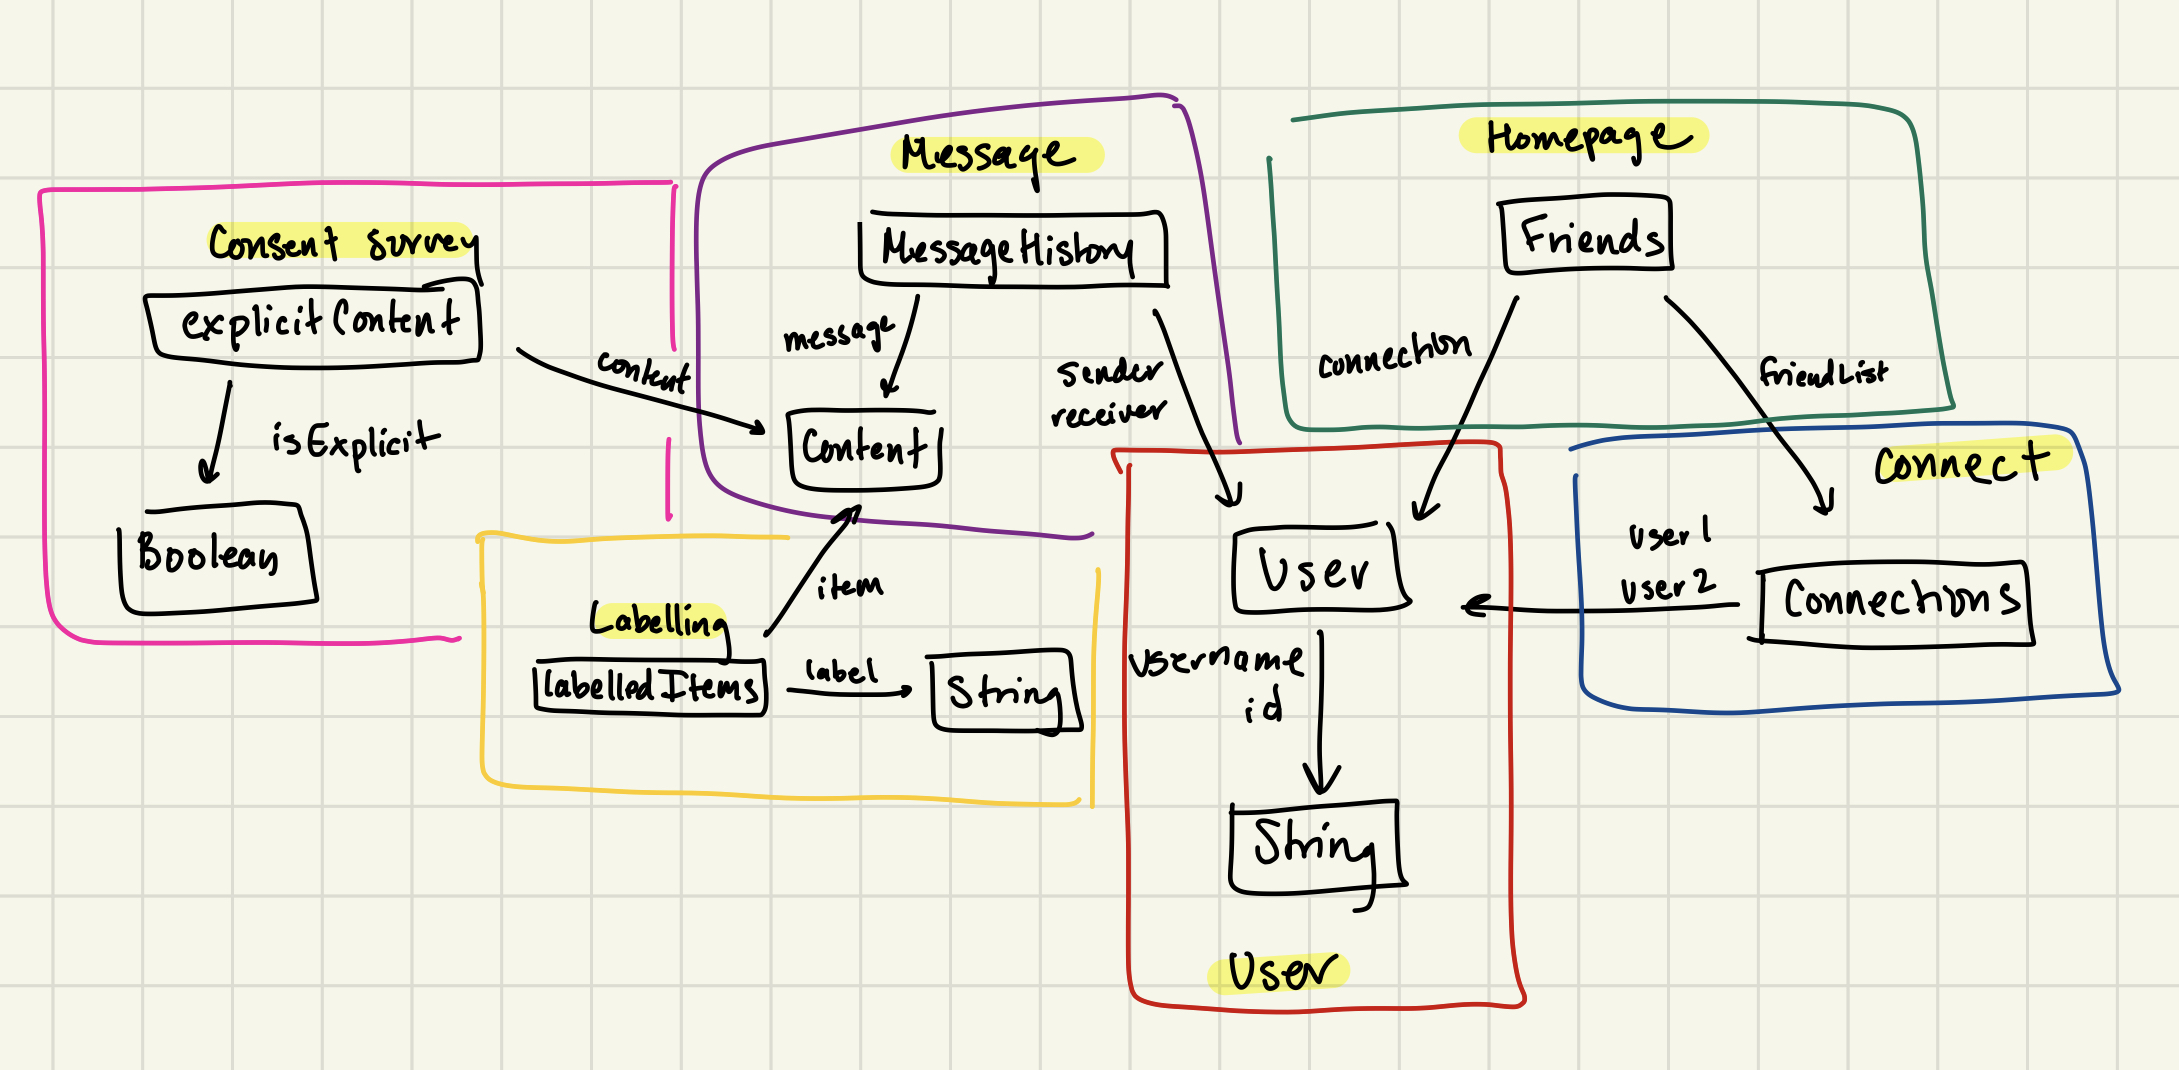 Consent survey
explicitContent
isExplicit
Boolean
content
Message
MessageHistory
message
sender
receiver
Content
Homepage
Friends
connection
friendList
Connect
user 1
user 2
Connections
Labelling
labelledItems
item
label
String
User
username
id
String
User